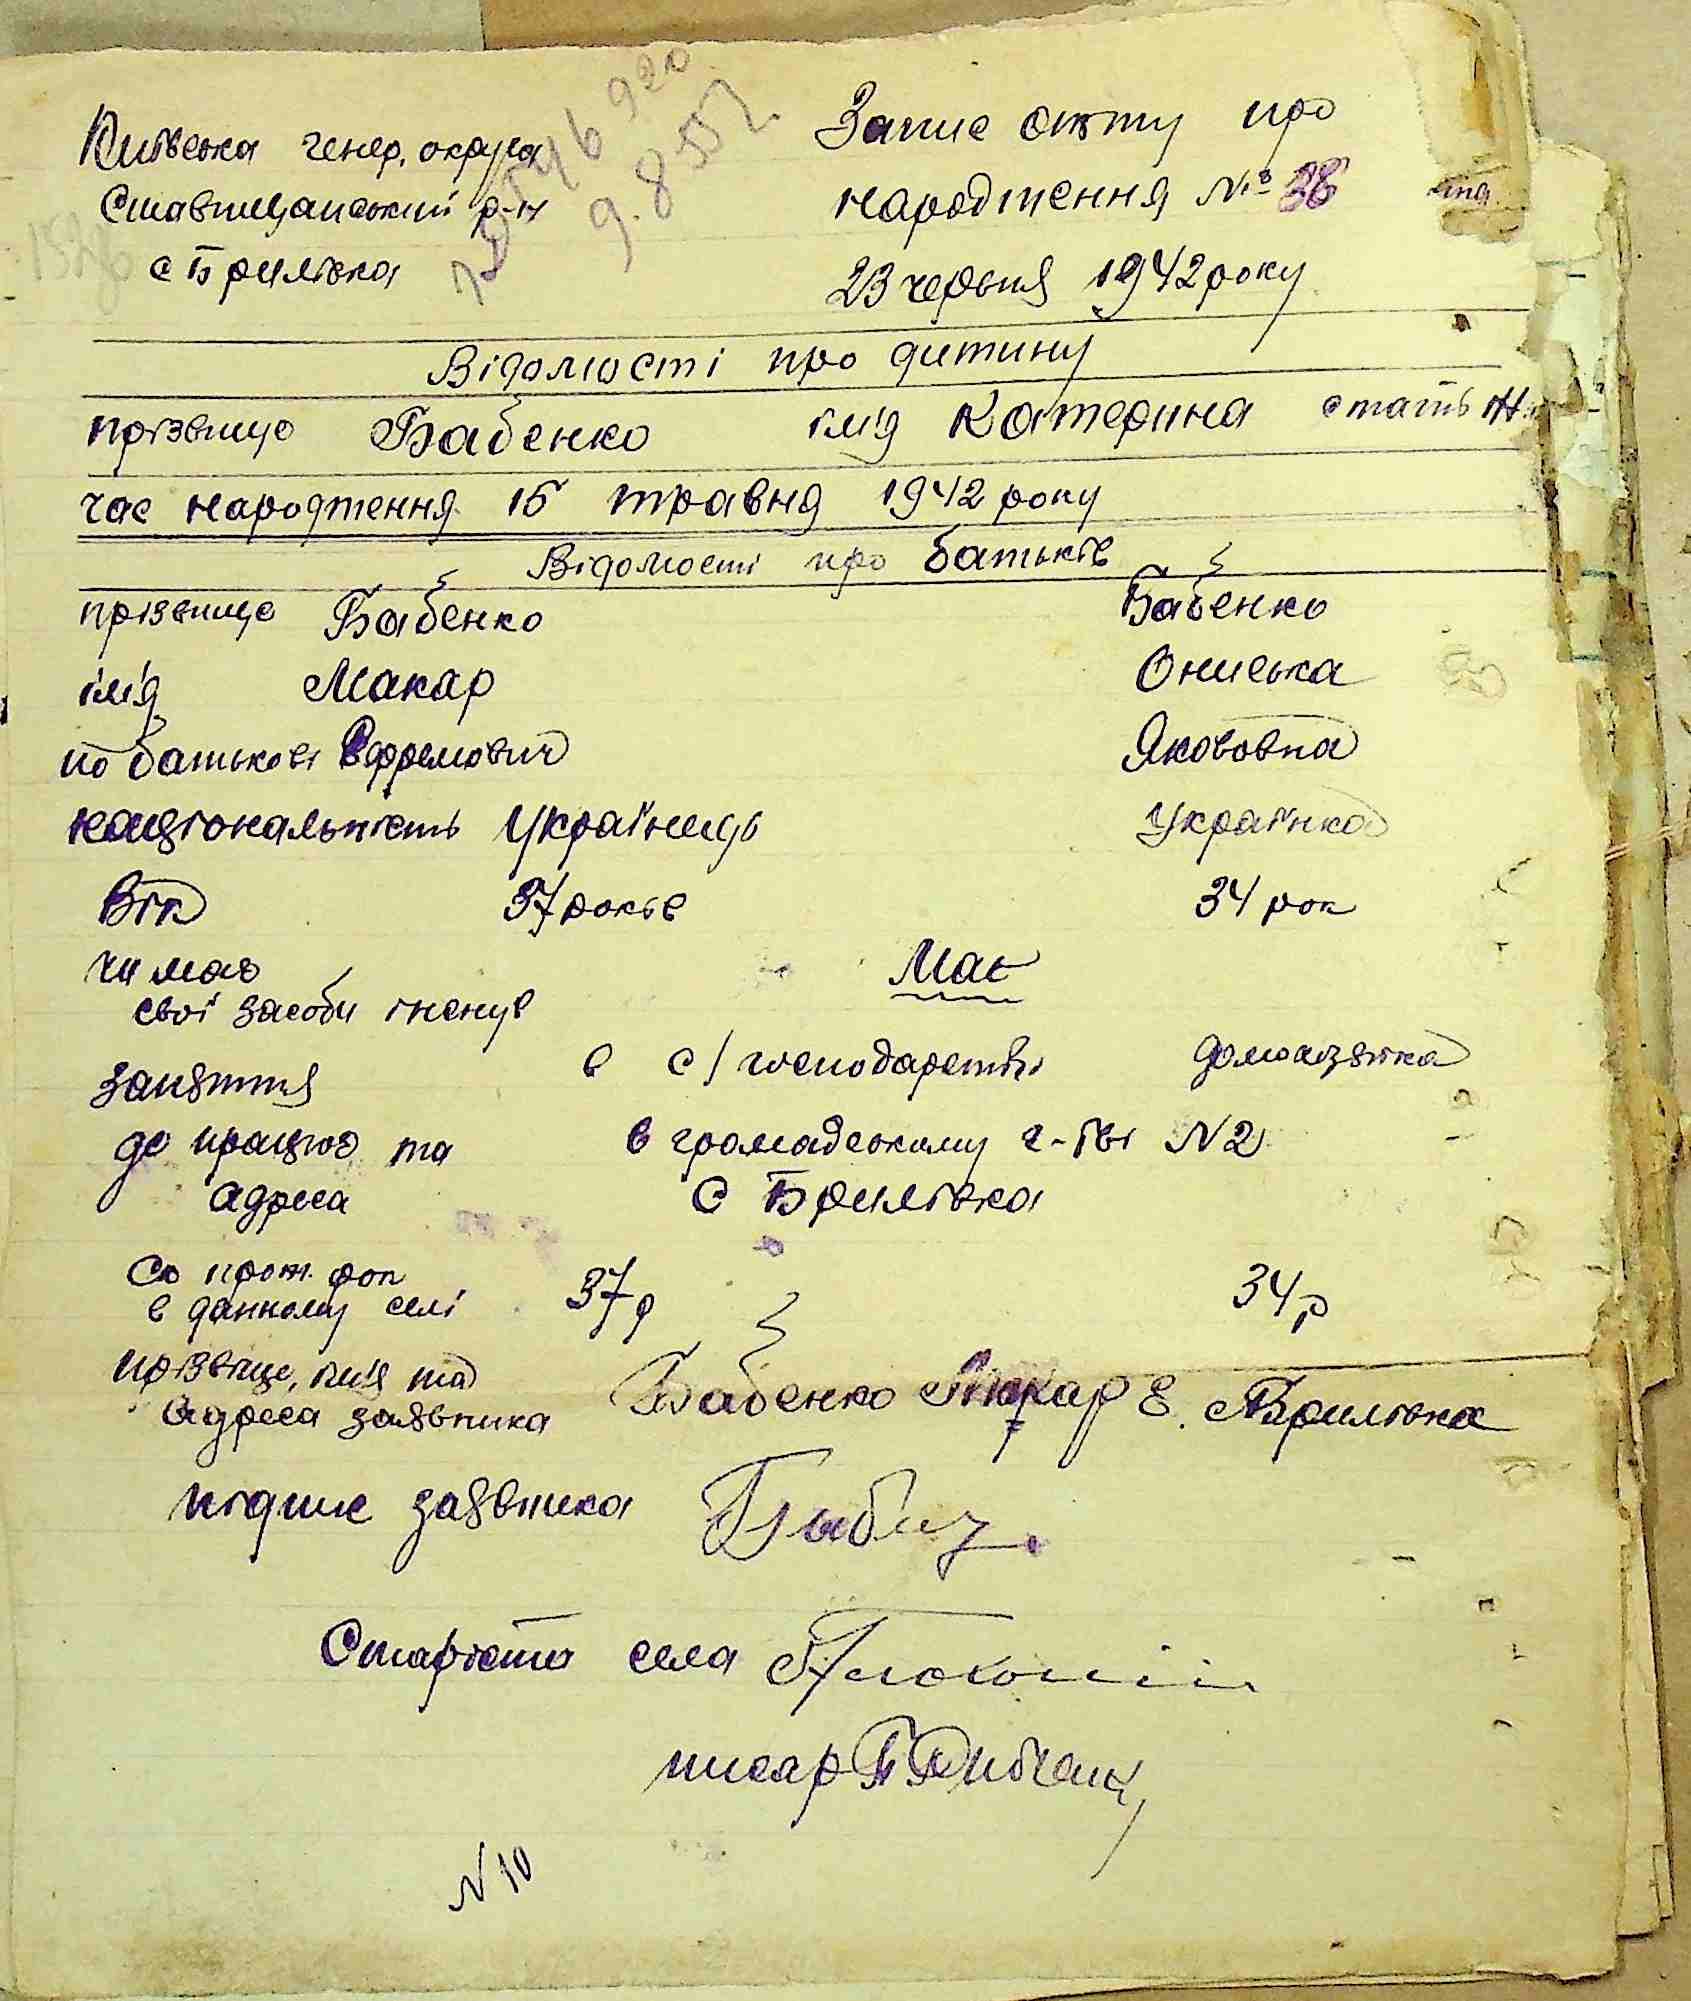 Київська генер. округа
Ставищанський р-н
с Брилівка
Запис акту про
народження № 38
23 червня 1942 року
Відомості про дитину
прізвище Бабенко ім'я Катерина стать Ж
час народження 15 травня 1942 року
Відомості про батьків
прізвище Бабенко Бабенко
ім'я Макар Ониська
по батькові Єфремович Якововна
національність Українець Українка
Вік 37 років 34 рок
чи має Має
свої засоби існув
заняття в с/господарстві домогазяйка
де працює та в громадському г-тві N2
адреса с Брилівка
Ск прож. рок
в данному селі 37 р 34 р
прізвище, ім'я та
адреса заявника Бабенко Макар Е. Брилівка
підпис заявника
Старіста села
писар
N 10